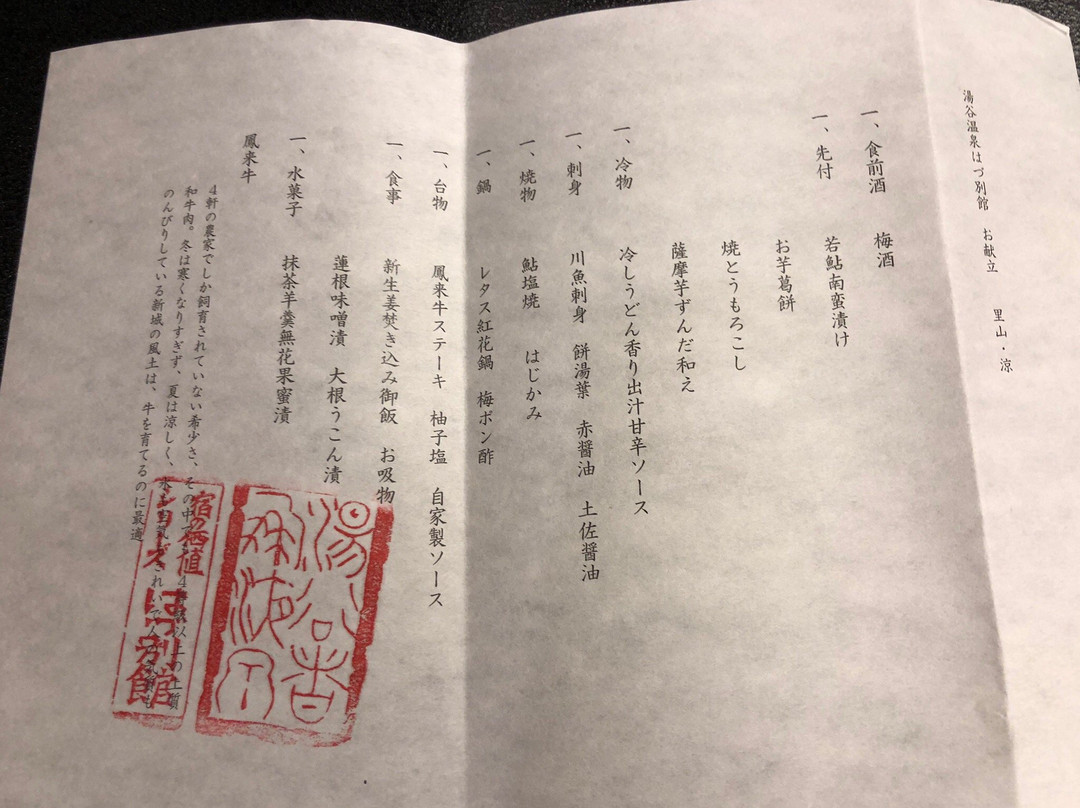 湯谷温泉はづ別館　お献立　里山・涼
一、食前酒　梅酒
一、先付　若鮎南蛮漬け
お芋葛餅
焼とうもろこし
薩摩芋ずんだ和え
一、冷物　冷しうどん香り出汁甘辛ソース
一、刺身　川魚刺身　餅湯葉　赤醤油　土佐醤油
一、焼物　鮎塩焼　はじかみ
一、鍋　レタス紅花鍋　梅ポン酢
一、台物　鳳来牛ステーキ　柚子塩　自家製ソース
一、食事　新生姜焚き込み御飯　お吸物
蓮根味噌漬　大根うこん漬
一、水菓子　抹茶羊羹無花果蜜漬
鳳来牛
4軒の農家でしか飼育されていない希少さ、その中で 4等級以上の上質
和牛肉。冬は寒くなりすぎず、夏は涼しく、水
のんびりしている新城の風土は、牛を育てるのに最適
別館